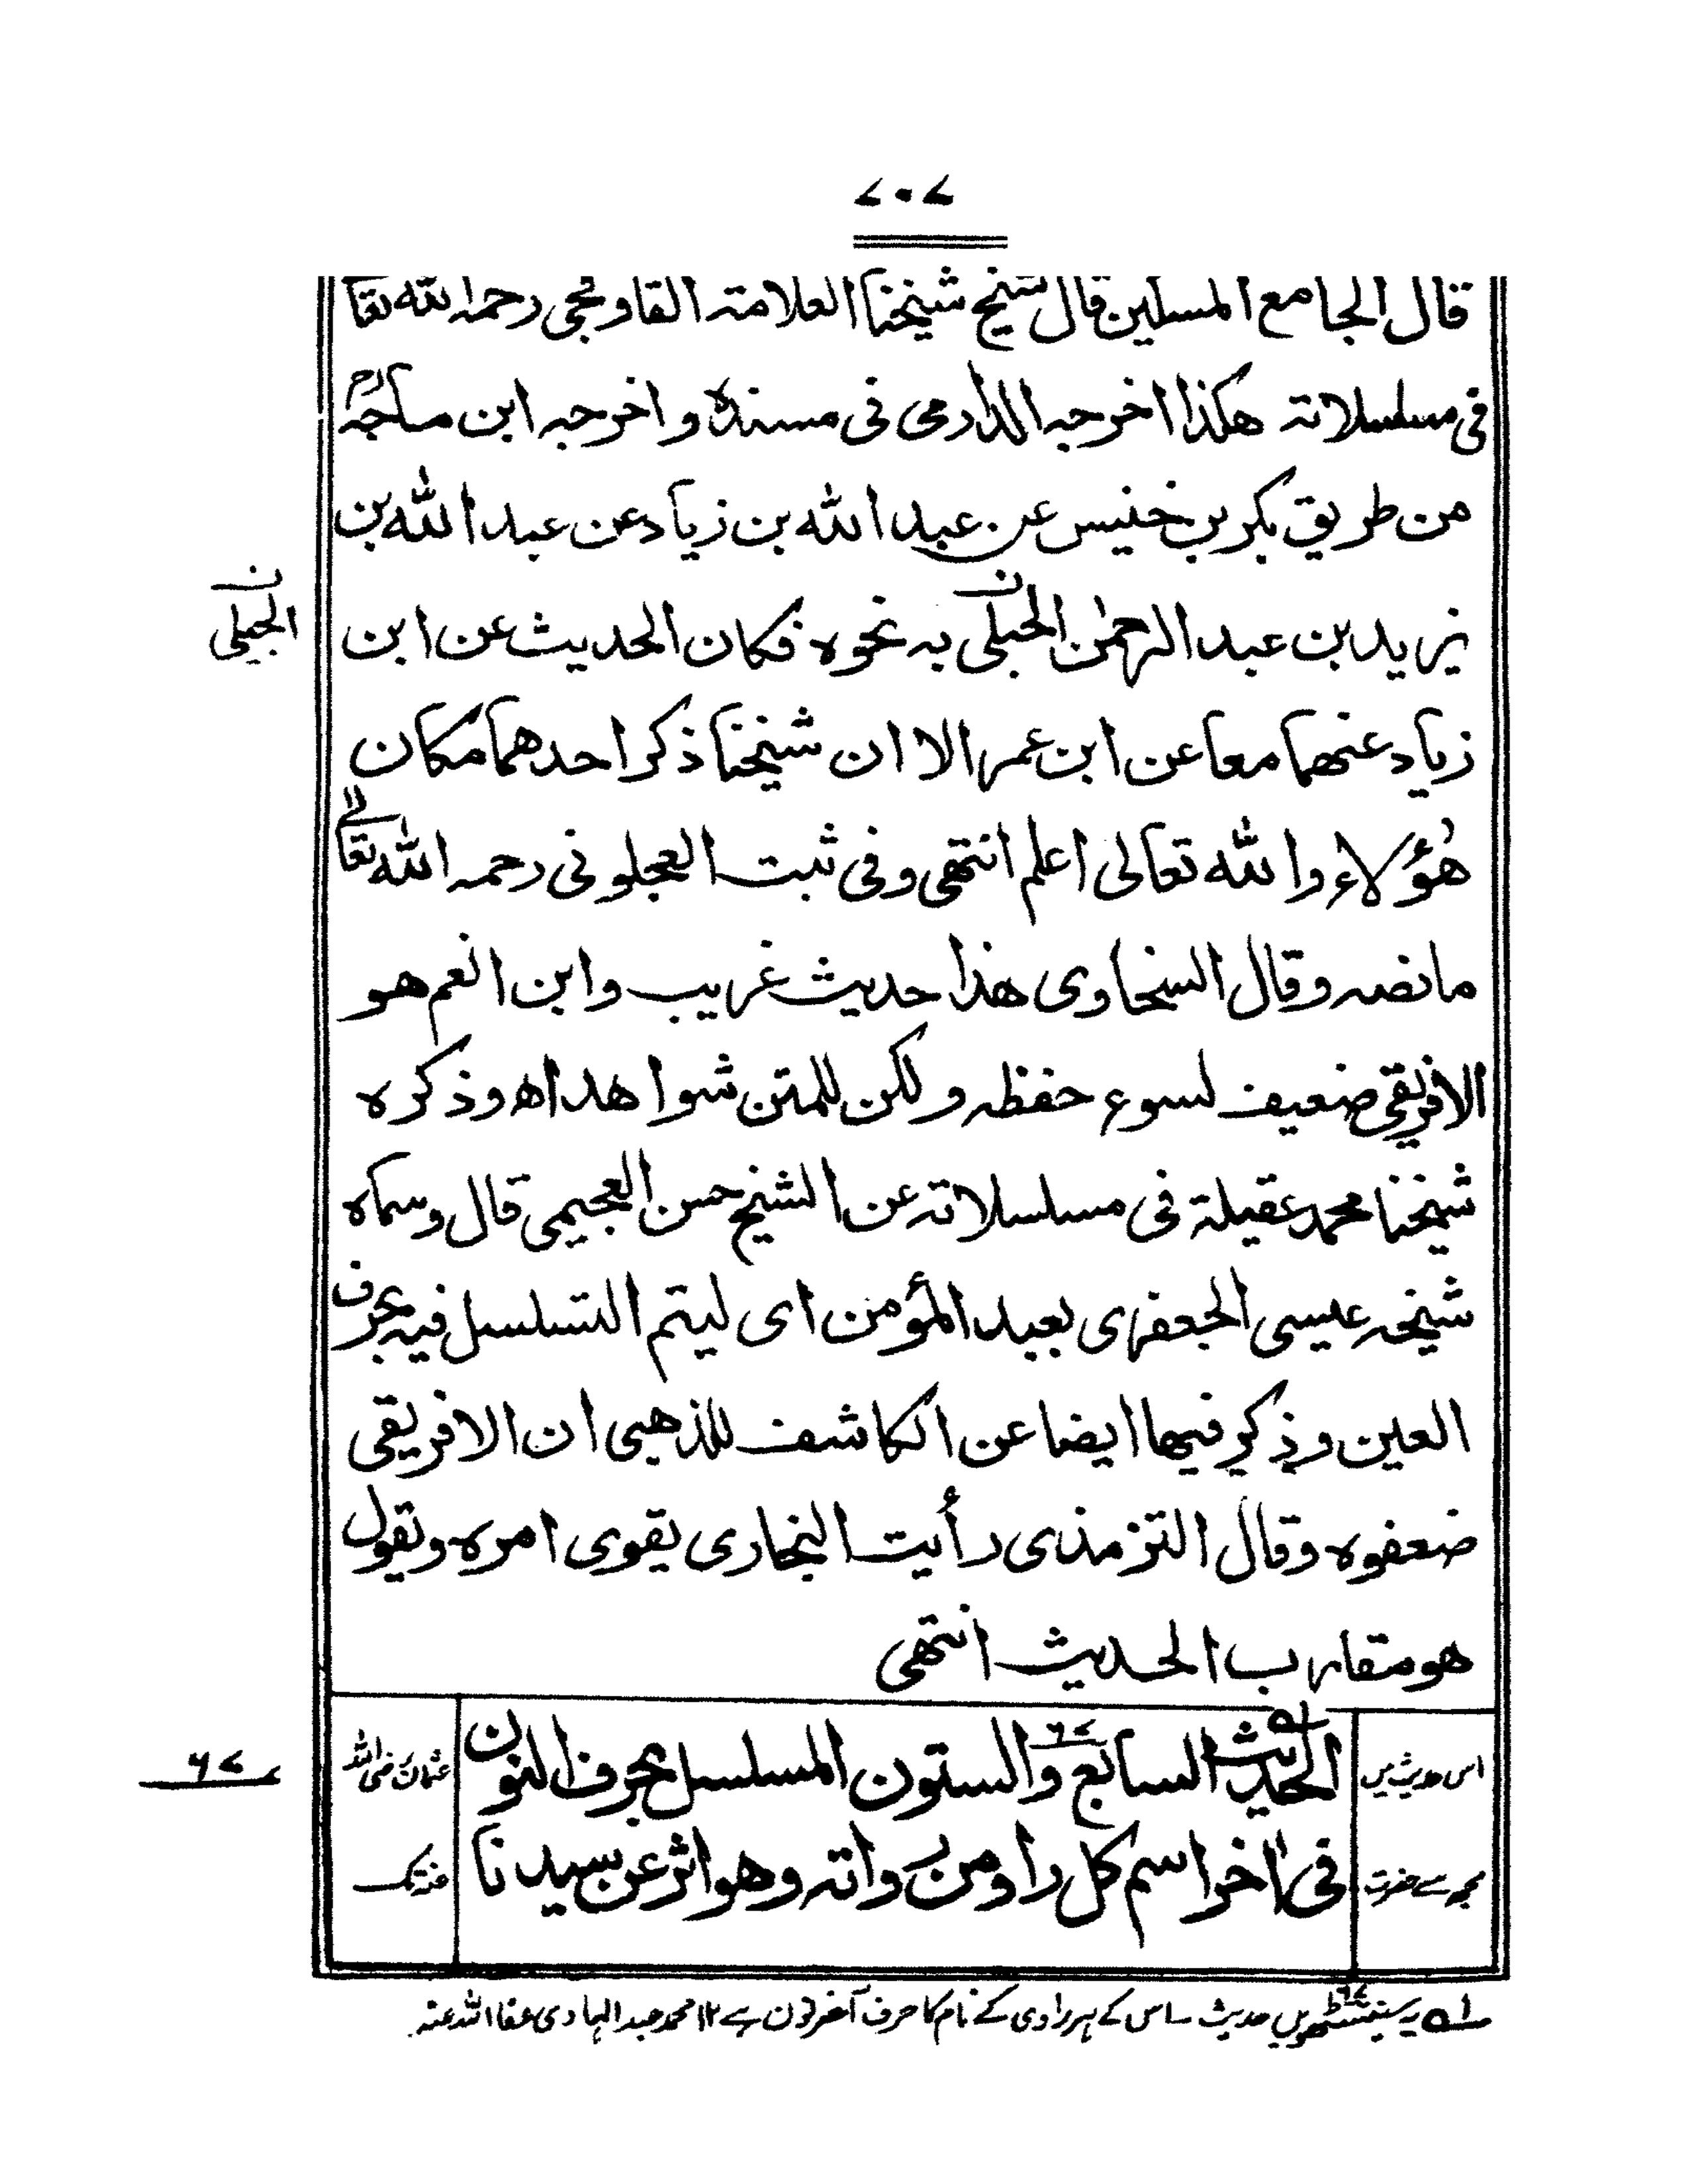 ۷۰۷
قال الجامع المسلسلين قال شيخ شيخنا العلامة القاوقجى رحمه الله تعا
فى مسلسلاته هكذا اخرجه الدارمى فى مسنده واخرجه ابن ماجه رح
من طريق بكر بن خنيس عن عبد الله بن زياد عن عبد الله بن
يزيد بن عبد الرحمٰن الحبلى به نحوه فكان الحديث عن ابن
ن الجبيلى
زياد عنهما معا عن ابن عمر الا ان شيخنا ذكر احدهما مكان
هٰؤلاء والله تعالى اعلم انتهى وفى ثبت العجلونى رحمه الله تعالے
ما نصه وقال السخاوى هذا حديث غريب وابن انعم هو
الافريقى ضعيف لسوء حفظه ولكن للمتن شواهد اه وذكره
شيخنا محمد عقيلة فى مسلسلاته عن الشيخ حسن العجيمى قال وسماه
شيخه عيسى الجعفرى بعبد المؤمن اى ليتم التسلسل فيه بحرف
العين وذكر فيها ايضا عن الكاشف للذهبى ان الافريقى
ضعفوه وقال الترمذى رأيت البخارى يقوى امره ويقول
هو مقارب الحديث انتهى
اس حدیث میں
الحديث السابع والستون المسلسل بحرف النون
۶۷
عثمان رضی اللہ
۶۷
مجھ سے حضرت
فى اٰخر اسم كل راو من رواته وهو اثر عن سيدنا
عنہ تک
لہ یہ سینسٹھویں حدیث ہے اس کے ہر راوی کے نام کا حرف آخر نون ہے ۱۲ محمد عبد الہادی عفا اللہ عنہ